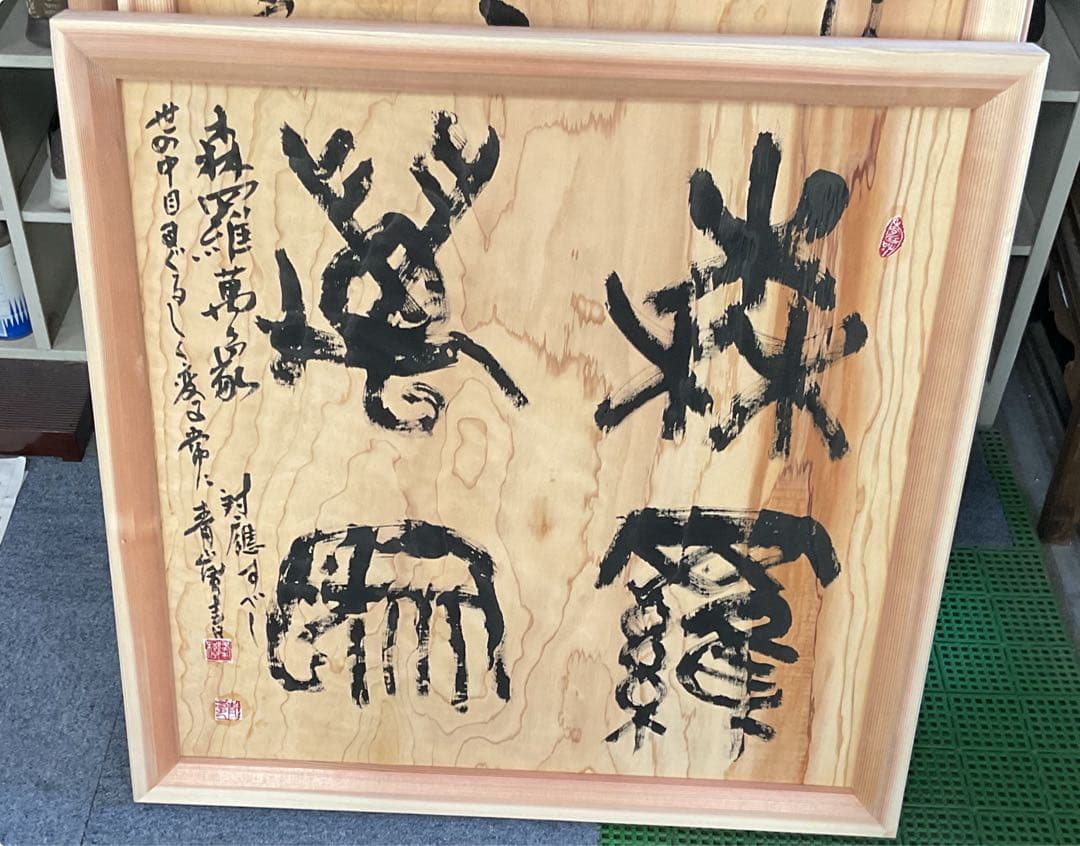 森羅
萬象
森羅萬象
世の中目まぐるしく変る常に
対應すべし
青嵐書